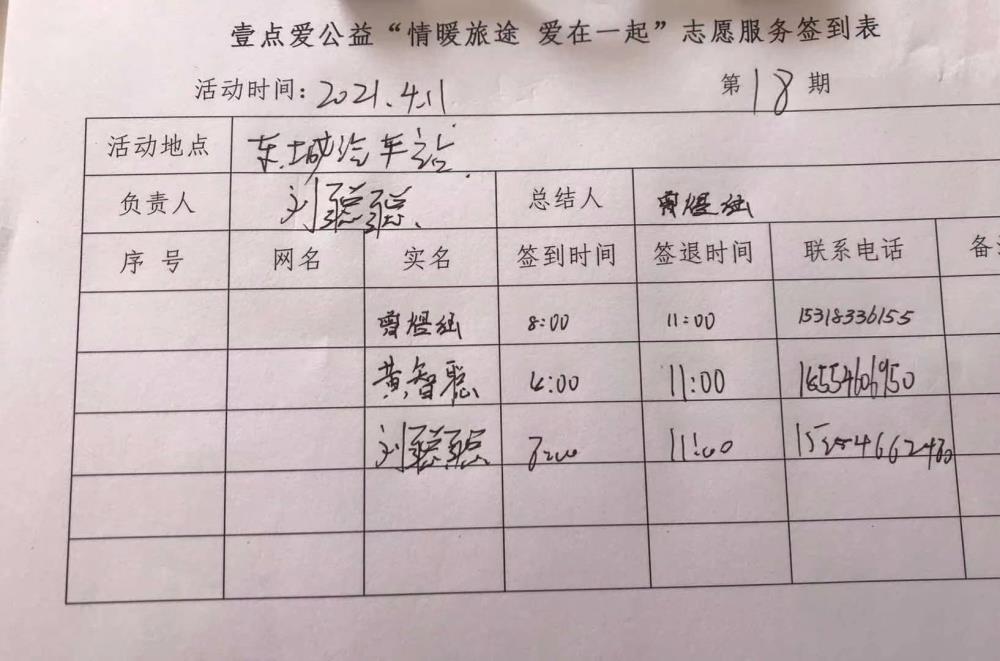 壹点爱公益“情暖旅途 爱在一起”志愿服务签到表
活动时间：2021.4.11 第18期
活动地点 东城汽车站
负责人 刘聪聪 总结人 曾煜弘
序号 网名 实名 签到时间 签退时间 联系电话
曾煜弘 8:00 11:00 15318336155
黄智聪 11:00 16554606950
刘聪聪 8:00 11:00